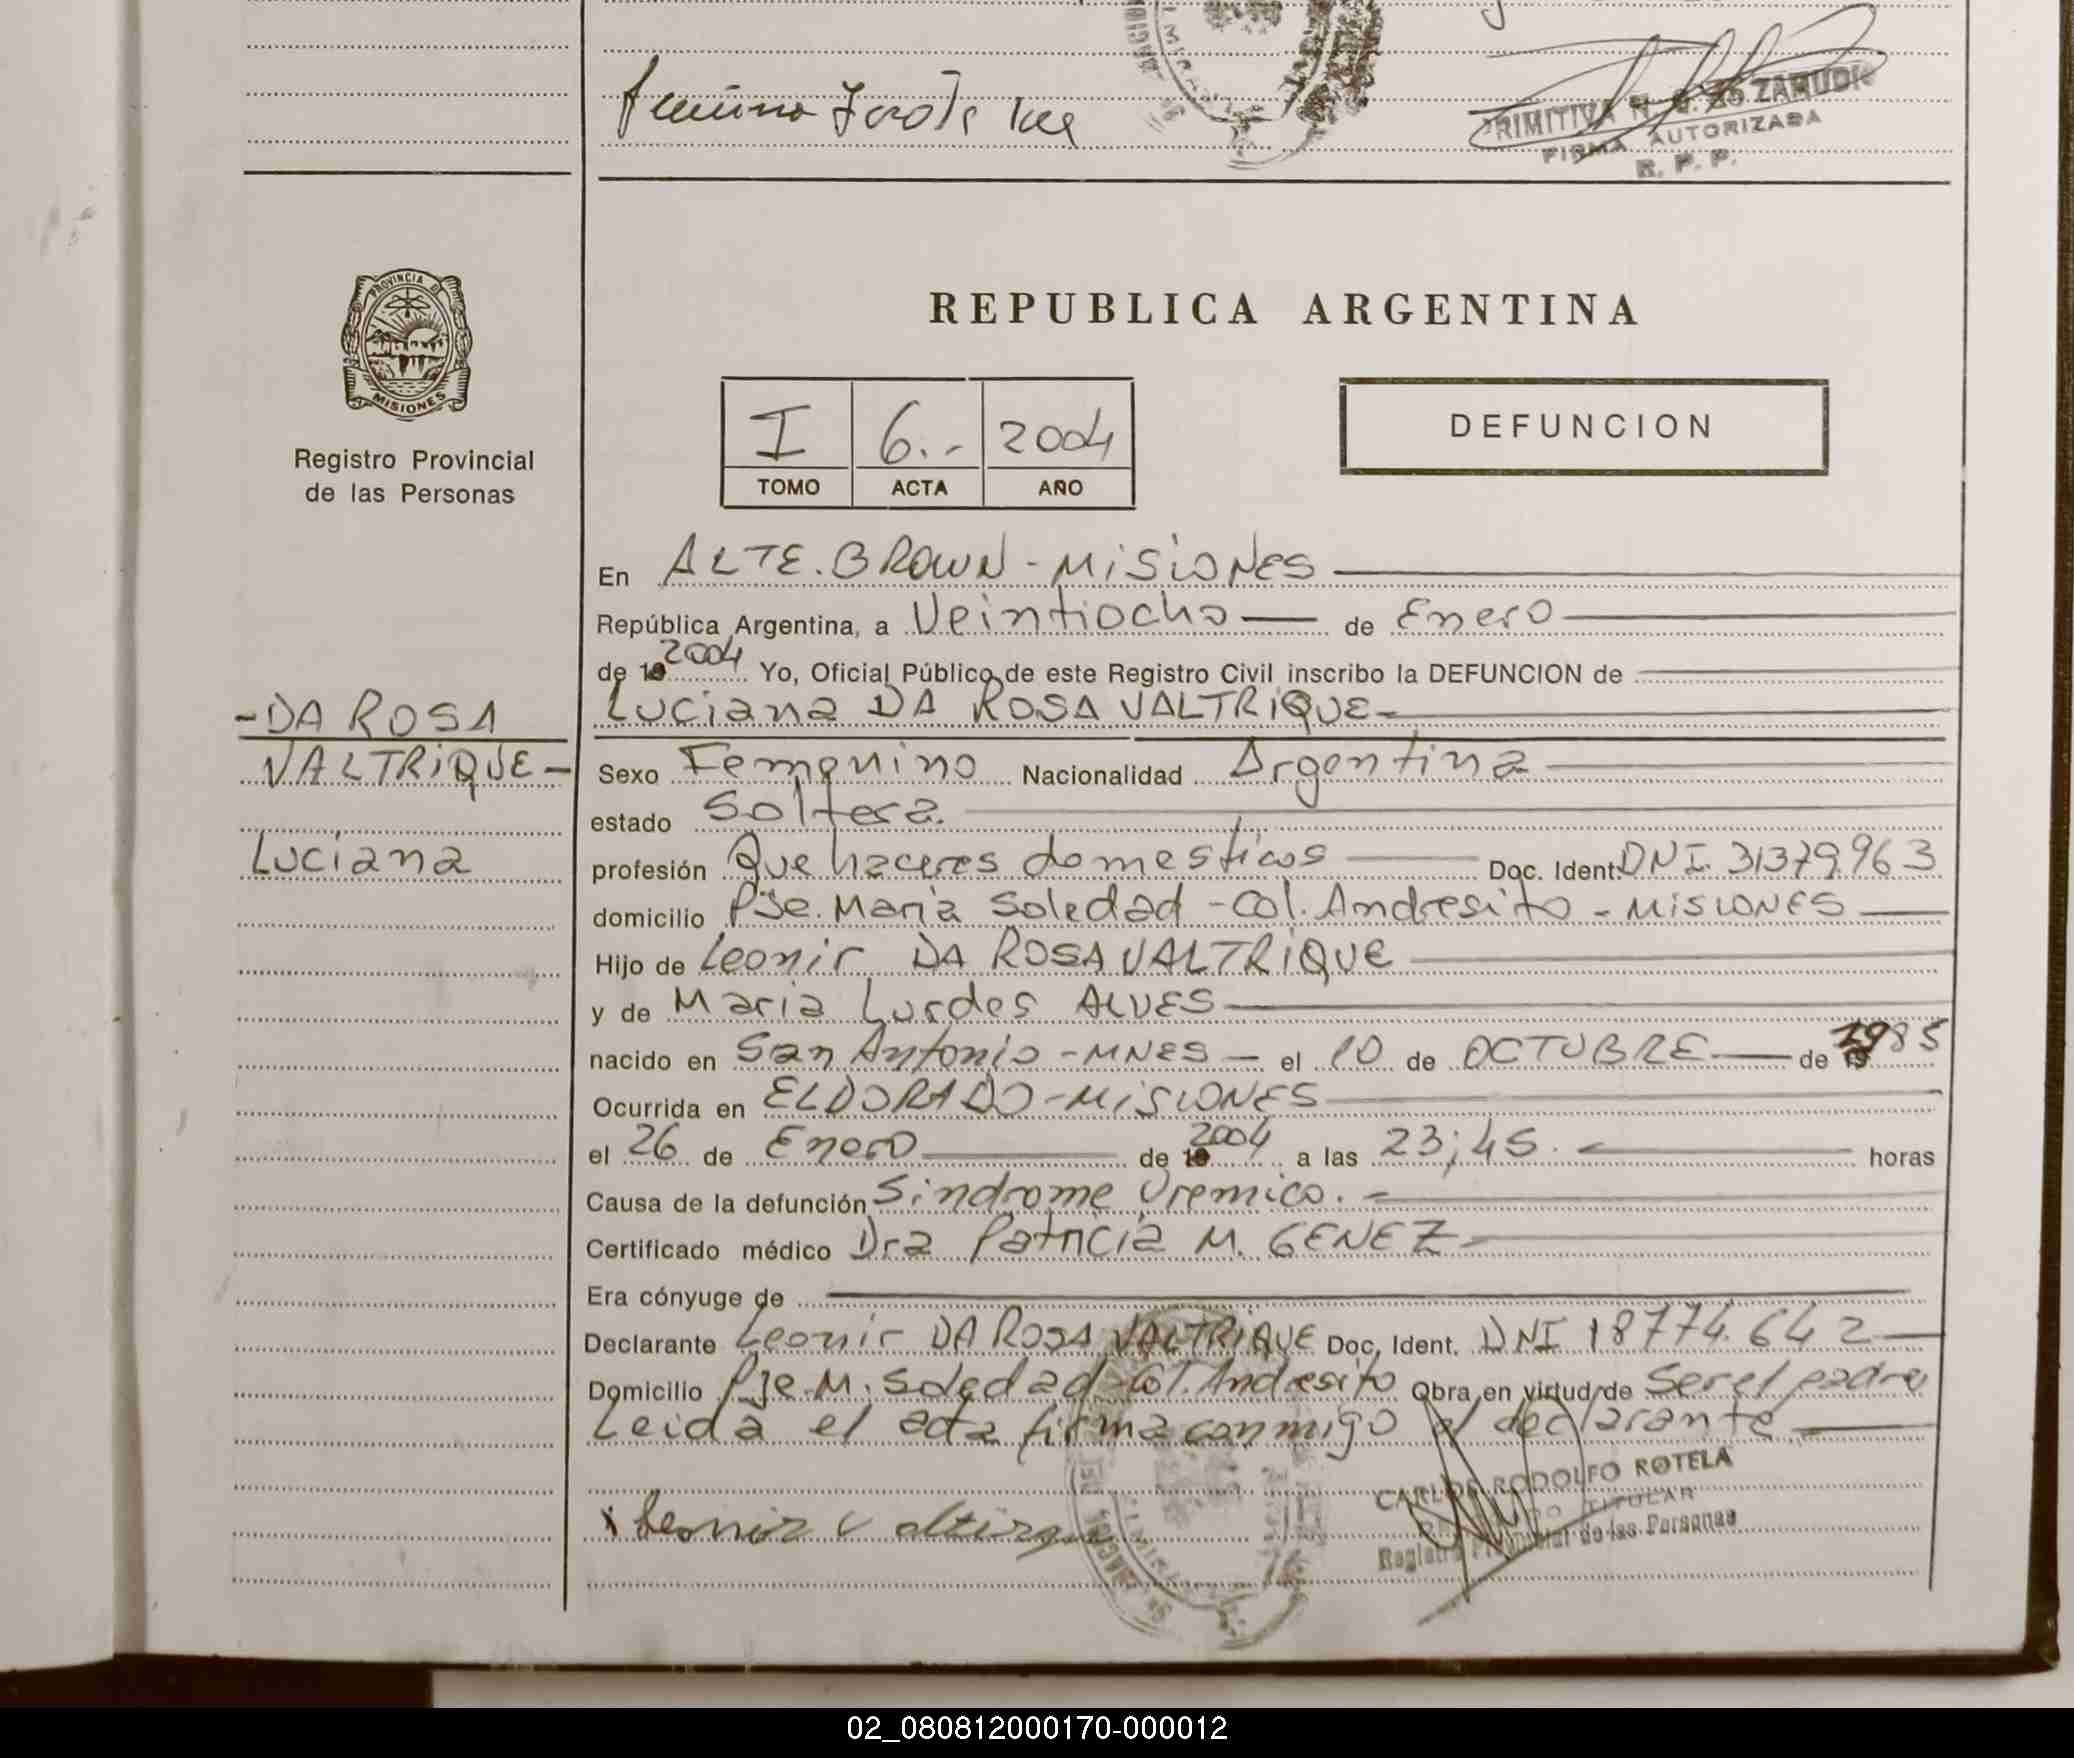 PRIMITIVA N. G. DE ZARUDK
FIRMA AUTORIZADA
R. P. P.
PROVINCIA DE
MISIONES
Registro Provincial
de las Personas
REPUBLICA ARGENTINA
I 6.- 2004
TOMO ACTA AÑO
DEFUNCION
En ALTE. BROWN - MISIONES
República Argentina, a Veintiocho de Enero
de 19 2004 Yo, Oficial Público de este Registro Civil inscribo la DEFUNCION de
Luciana DA ROSA VALTRIQUE-
-DA ROSA
VALTRIQUE-
Luciana
Sexo Femenino Nacionalidad Argentina
estado Soltera.
profesión Que haceres domesticos Doc. Ident. DNI. 31379.963
domicilio Pje. Maria Soledad - Col. Andresito - MISIONES
Hijo de Leonir DA ROSA VALTRIQUE
y de Maria Lurdes ALVES
nacido en San Antonio - MNES - el 10 de OCTUBRE de 1985
Ocurrida en ELDORADO - MISIONES
el 26 de Enero de 19 2004 a las 23;45. horas
Causa de la defunción Sindrome Uremico. -
Certificado médico Dra Patricia M. GENEZ
Era cónyuge de
Declarante Leonir DA ROSA VALTRIQUE Doc. Ident. DNI 18774.642
Domicilio Pje. M. Soledad - Col. Andresito Obra en virtud de Ser el padre
Leida el acta firma conmigo el declarante
CARLOS RODOLFO ROTELA
TITULAR
Registro Provincial de las Personas
x Leonir Valtirque
02_080812000170-000012